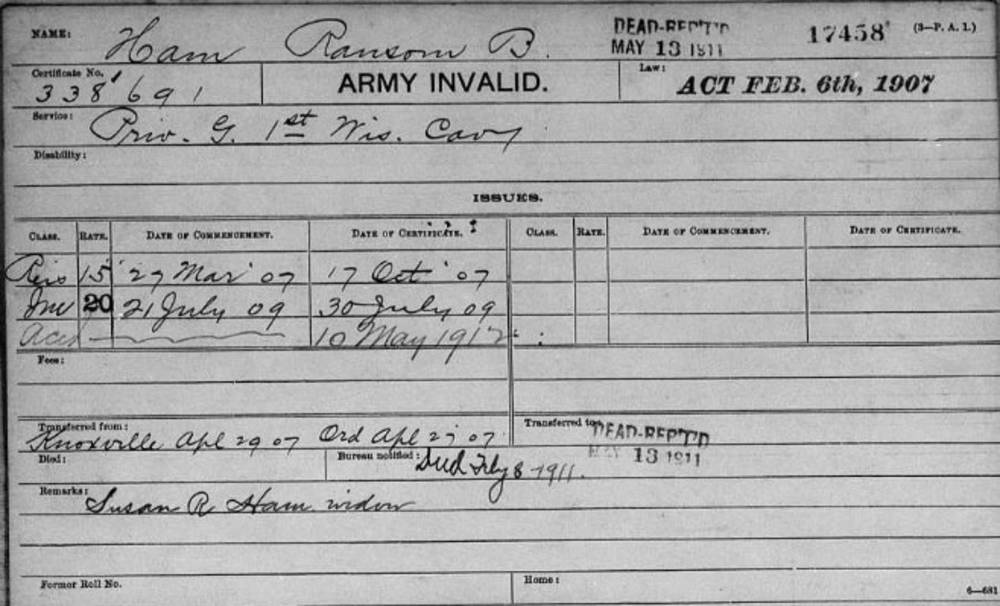 NAME: Ham Ransom B. DEAD-REP'T'D MAY 13 1911 17458 (3—P. A. I.)
Certificate No. 338691 ARMY INVALID. Law: ACT FEB. 6th, 1907
Service: Priv. G. 1st Wis. Cavy
Disability:
ISSUES.
CLASS. RATE. DATE OF COMMENCEMENT. DATE OF CERTIFICATE. CLASS. RATE. DATE OF COMMENCEMENT. DATE OF CERTIFICATE.
15 27 Mar 07 17 Oct 07
Inc 20 21 July 09 30 July 09
10 May 1912
Fees:
Transferred from: Transferred to: DEAD-REP'T'D
Knoxville Apl 29 07 Ord Apl 27 07 MAY 13 1911
Died: Bureau notified: Died Feby 8 1911.
Remarks: Susan R Ham widow
Former Roll No. Home:
6—681